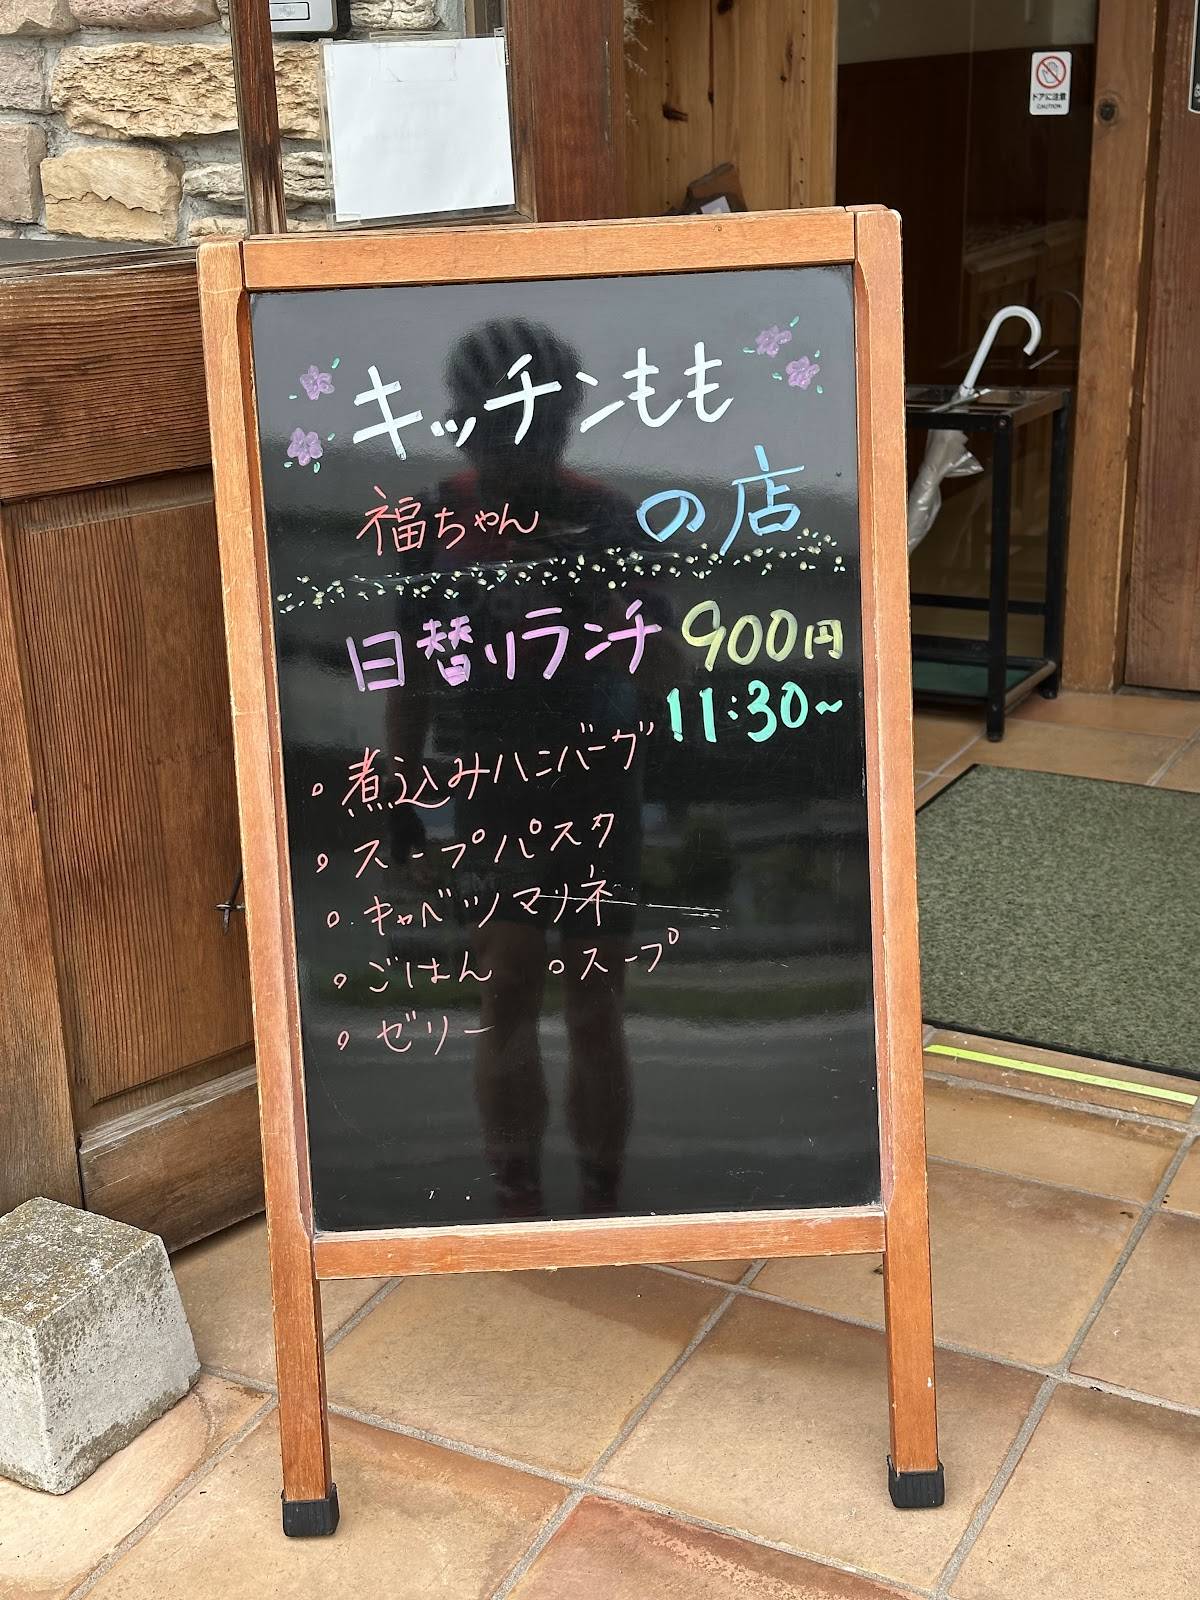 ドアに注意
CAUTION
キッチンもも
福ちゃん の店
日替りランチ 900円
11:30~
。煮込みハンバーグ
。スープパスタ
。キャベツマリネ
。ごはん 。スープ
。ゼリー